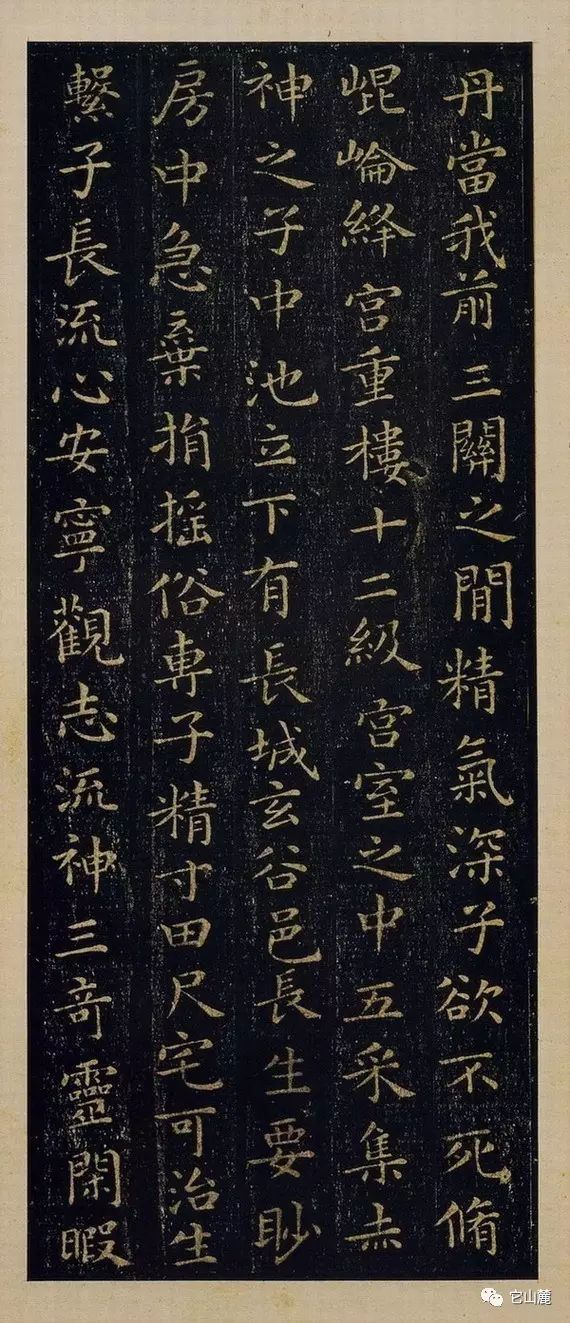 丹當我前三關之閒精氣深子欲不死脩
崐崘絳宮重樓十二級宮室之中五采集赤
神之子中池立下有長城玄谷邑長生要眇
房中急棄捐揺俗專子精寸田尺宅可治生
繫子長流心安寧觀志流神三奇靈閑暇
它山麓